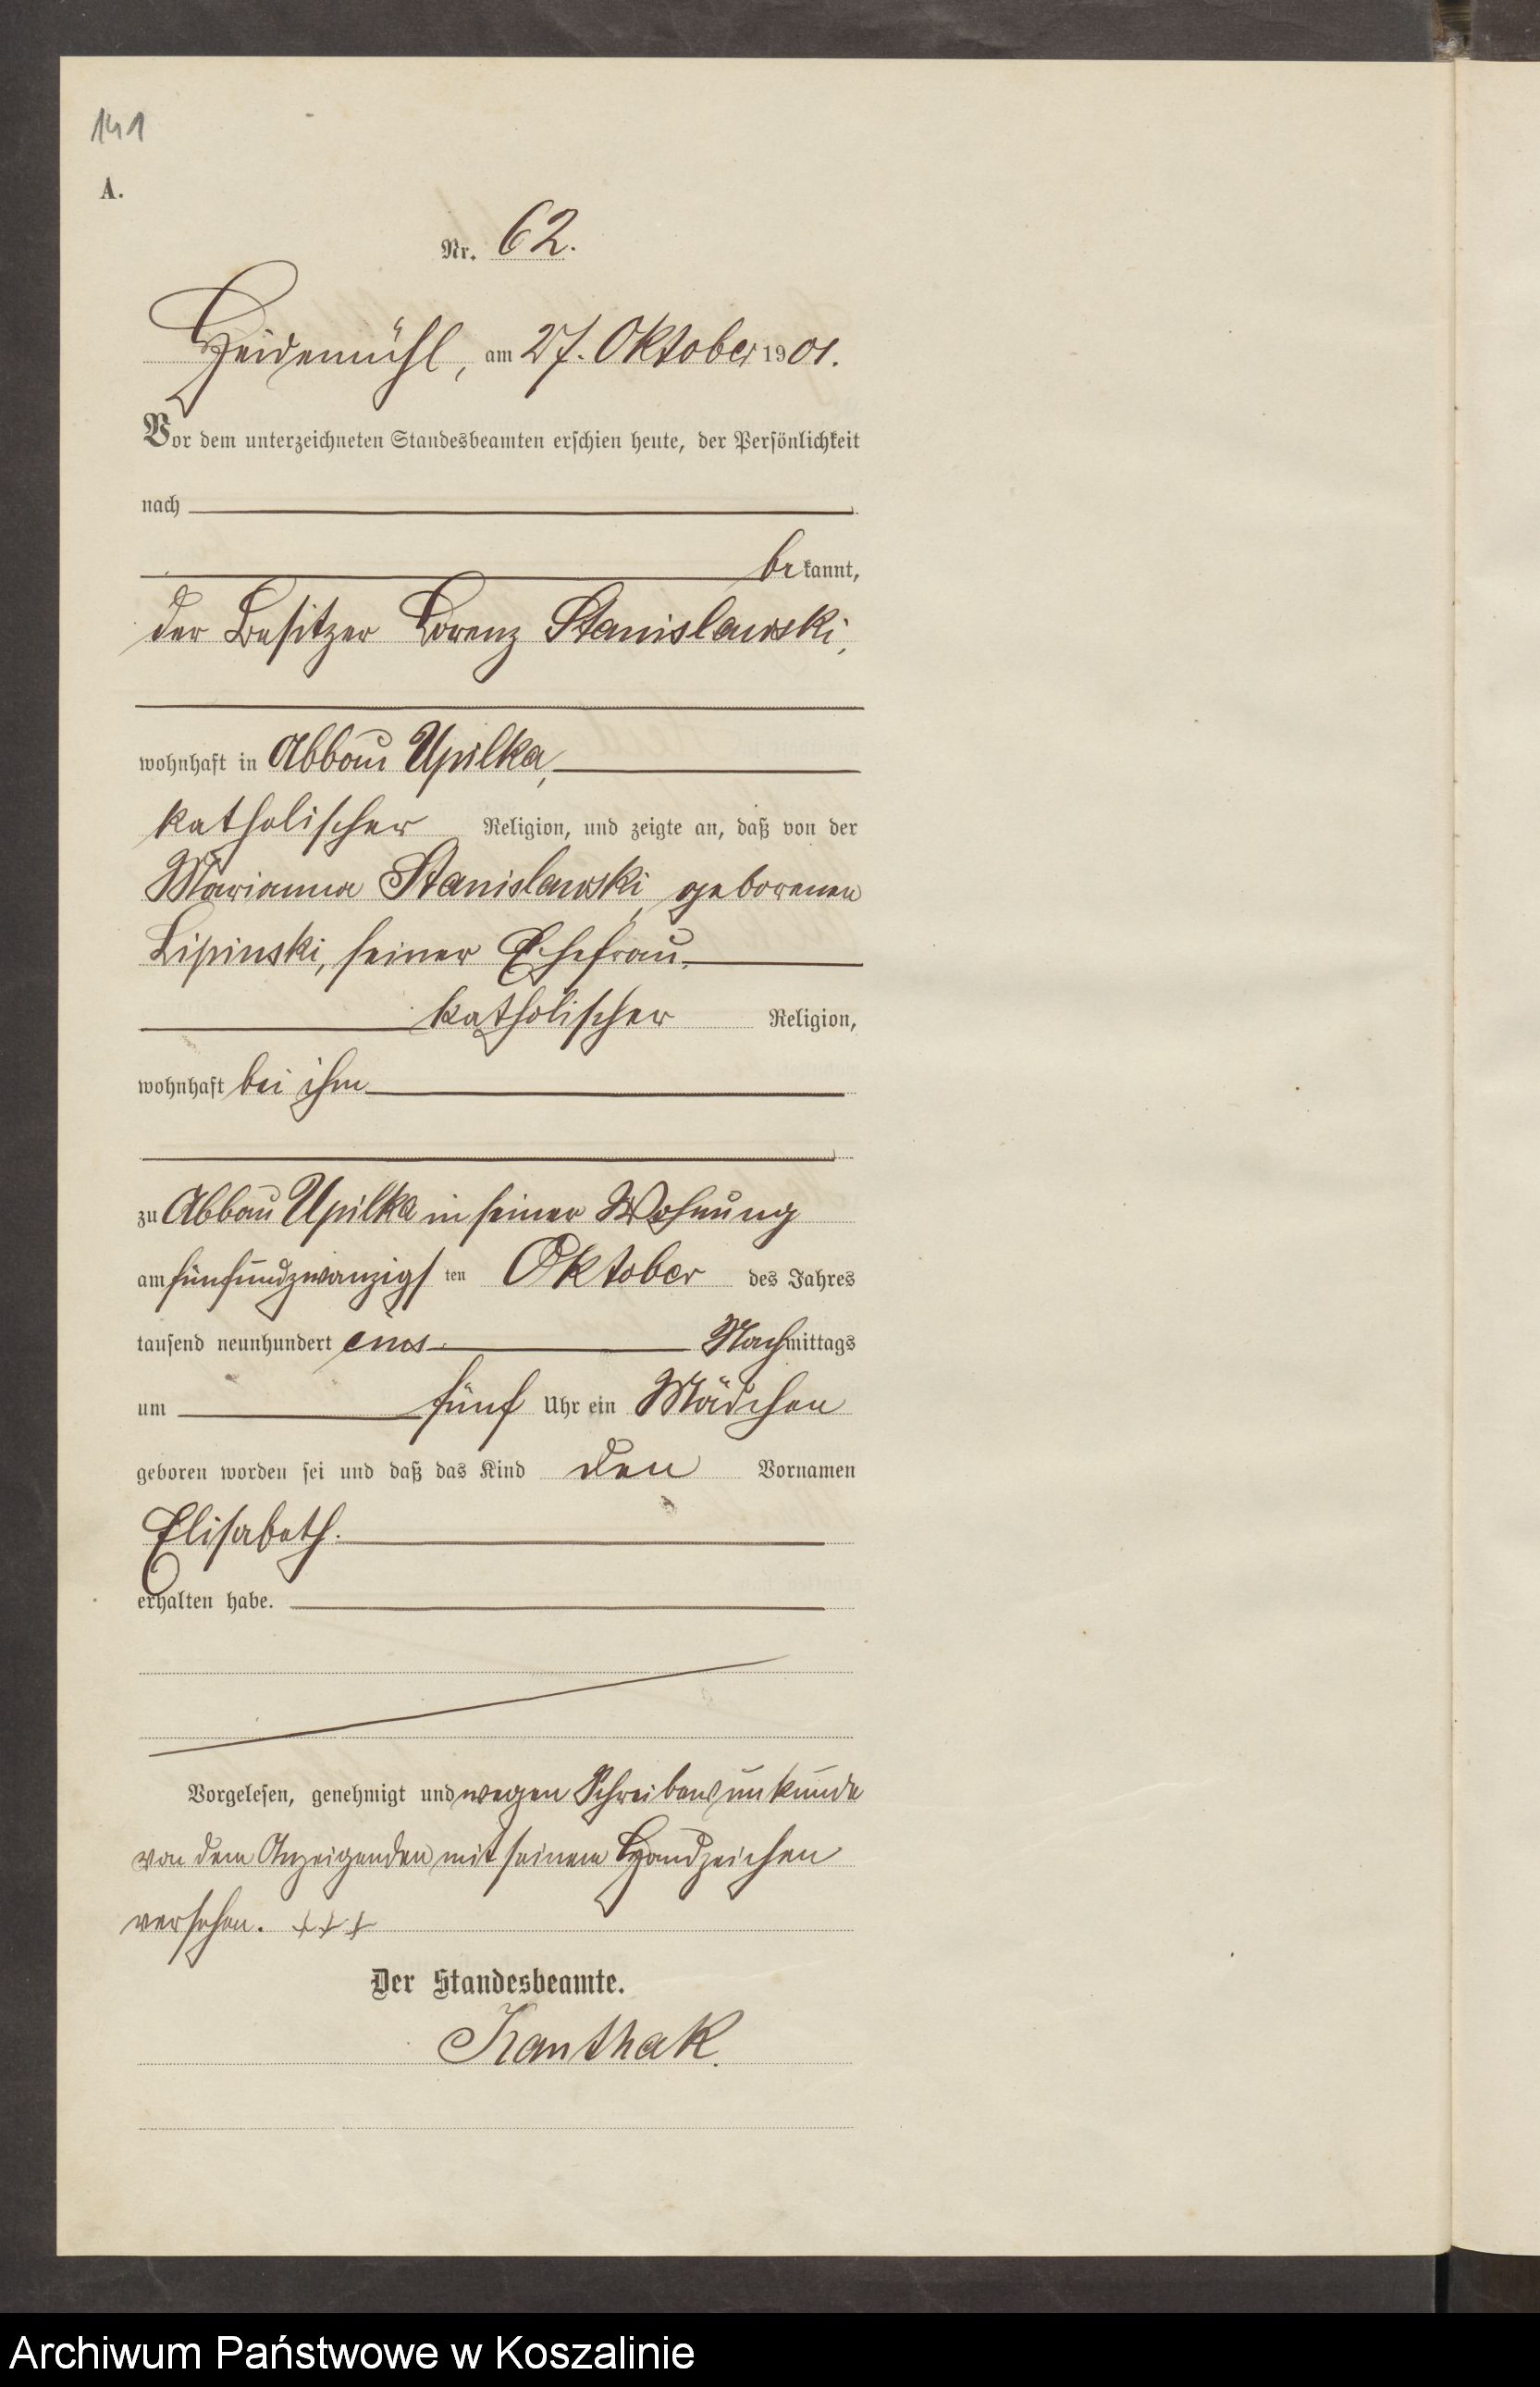 141
A.
Nr. 62.
Heidemühl, am 27. Oktober 1901.
Vor dem unterzeichneten Standesbeamten erschien heute, der Persönlichkeit
nach
bekannt,
der Besitzer Lorenz Stanislawski,
wohnhaft in Abbau Upilka,
katholischer Religion, und zeigte an, daß von der
Marianna Stanislawski, geborenen
Lipinski, seiner Ehefrau,
katholischer Religion,
wohnhaft bei ihm
zu Abbau Upilka in seiner Wohnung
am fünfundzwanzigsten Oktober des Jahres
tausend neunhundert eins Nachmittags
um fünf Uhr ein Mädchen
geboren worden sei und daß das Kind den Vornamen
Elisabeth.
erhalten habe.
Vorgelesen, genehmigt und wegen Schreibensunkunde
von dem Anzeigenden mit seinem Handzeichen
versehen. +++
Der Standesbeamte.
Kanthak.
Archiwum Państwowe w Koszalinie